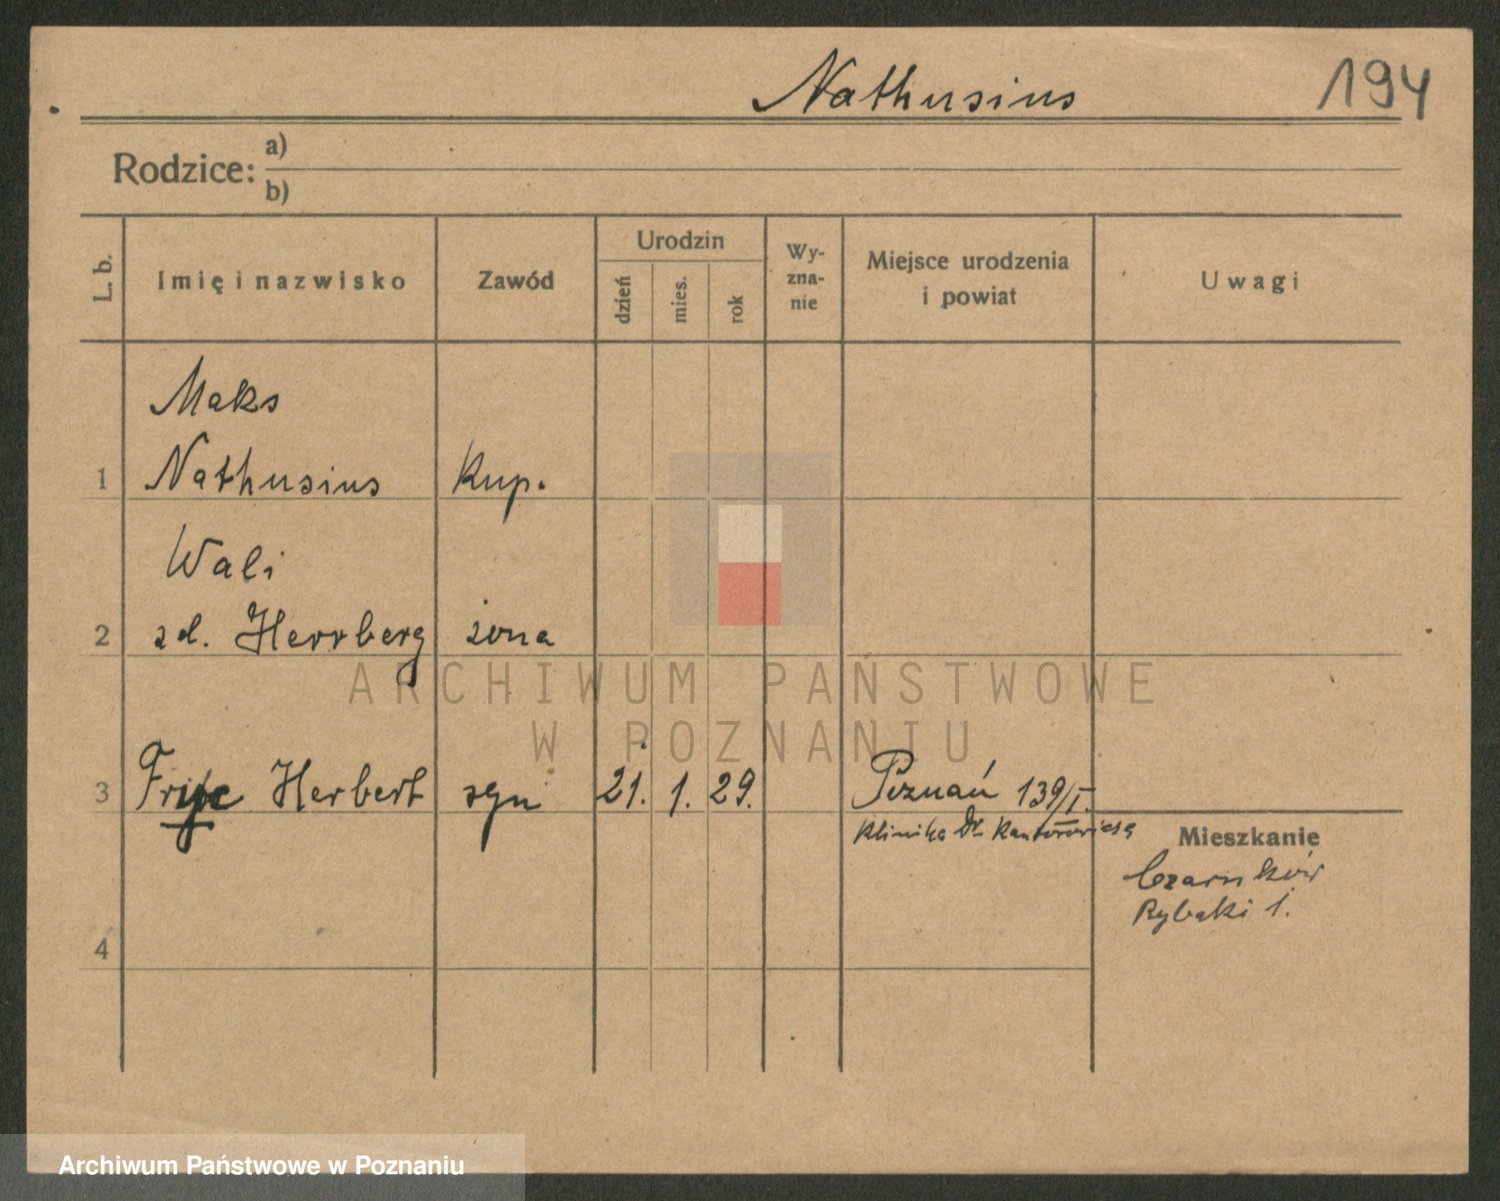 Nathusius 194
Rodzice: a)
b)
L. b. Imię i nazwisko Zawód Urodzin dzień mies. rok Wy-zna-nie Miejsce urodzenia i powiat Uwagi
Maks
1 Nathusius Kup.
Wali
2 zd. Herrberg żona
3 Herbert syn 21. 1. 29. Poznań 139/I.
Klinika Dr Kantorowicza
Mieszkanie
Czarnków
Rybaki 1.
4
ARCHIWUM PAŃSTWOWE
W POZNANIU
Archiwum Państwowe w Poznaniu